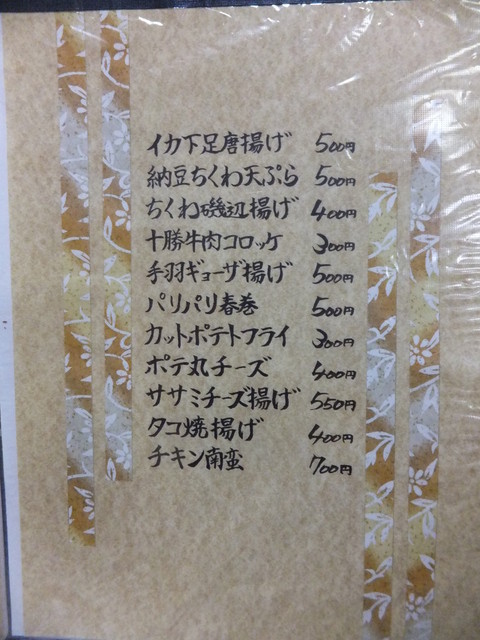 イカ下足唐揚げ 500円
納豆ちくわ天ぷら 500円
ちくわ磯辺揚げ 400円
十勝牛肉コロッケ 300円
手羽ギョーザ揚げ 500円
パリパリ春巻 500円
カットポテトフライ 300円
ポテ丸チーズ 400円
ササミチーズ揚げ 550円
タコ焼揚げ 400円
チキン南蛮 700円